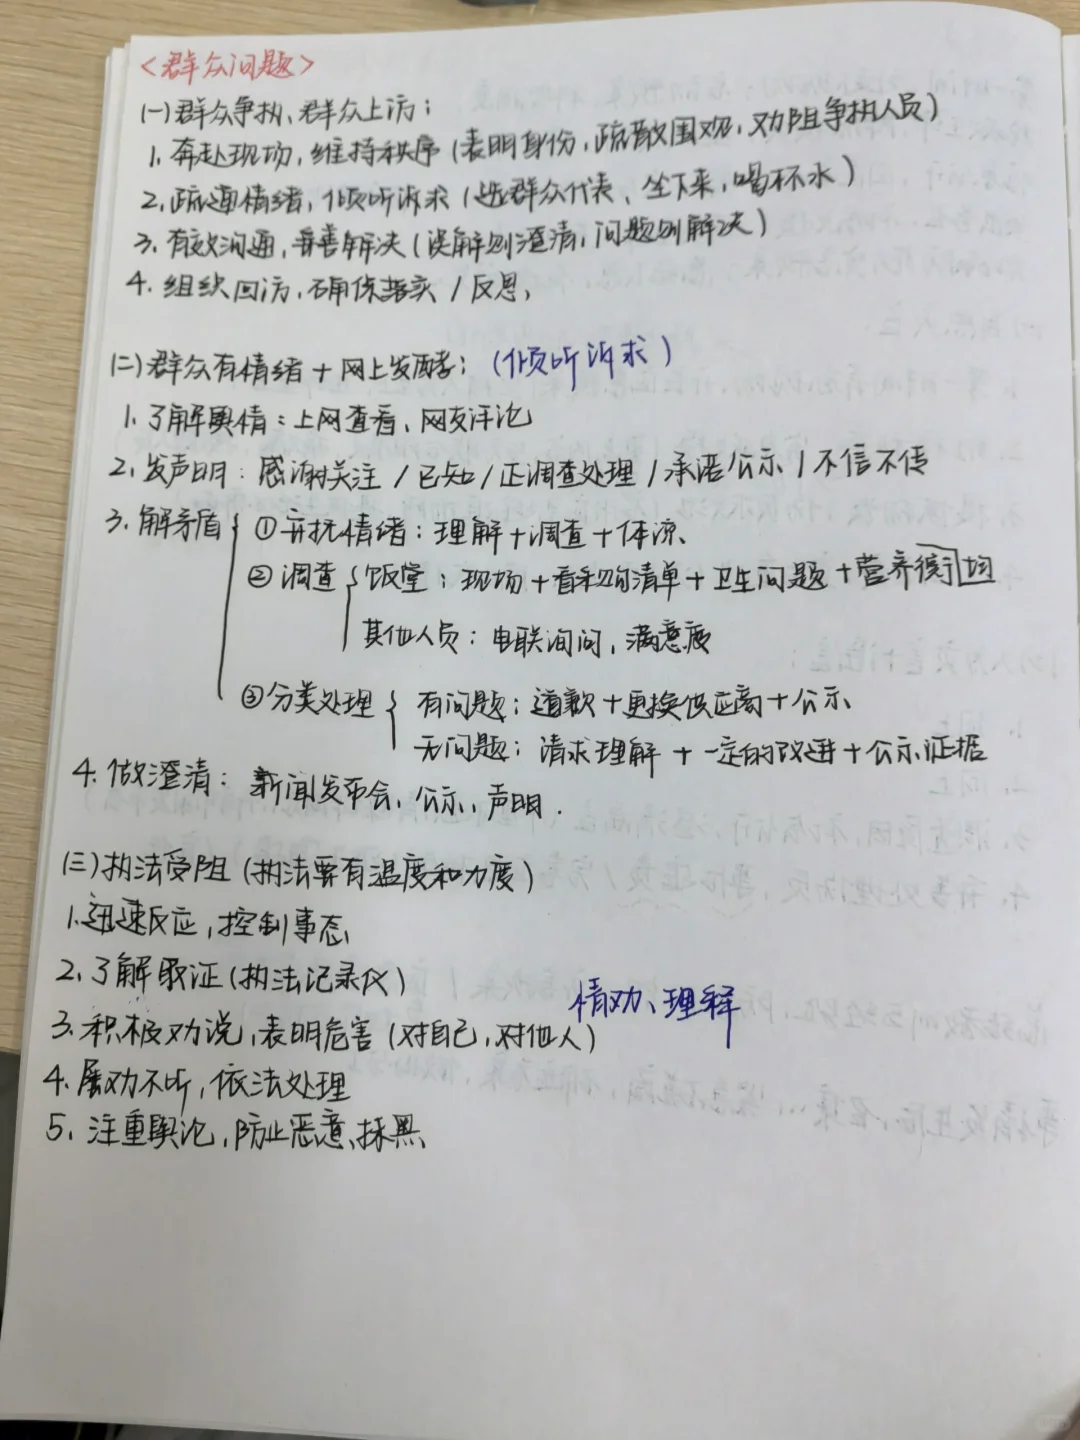 <群众问题>
(一)群众争执、群众上访:
1. 奔赴现场,维持秩序(表明身份,疏散围观,劝阻争执人员)
2. 疏通情绪,倾听诉求(选群众代表、坐下来,喝杯水)
3. 有效沟通,妥善解决(误解则澄清,问题则解决)
4. 组织回访,确保落实/反思、
(二)群众有情绪+网上发酵: (倾听诉求)
1. 了解舆情:上网查看、网友评论
2. 发声明:感谢关注/已知/正调查处理/承诺公示/不信不传
3. 解矛盾 ①安抚情绪:理解+调查+体谅、
②调查 饭堂:现场+看采购清单+卫生问题+营养衡均
其他人员:电联询问,满意度
③分类处理 有问题:道歉+更换供应商+公示、
无问题:请求理解+一定的改进+公示证据
4. 做澄清:新闻发布会、公示、声明.
(三)执法受阻(执法要有温度和力度)
1. 迅速反应,控制事态
2. 了解取证(执法记录仪)
情劝、理释
3. 积极劝说,表明危害(对自己,对他人)
4. 屡劝不听,依法处理
5. 注重舆论,防止恶意抹黑